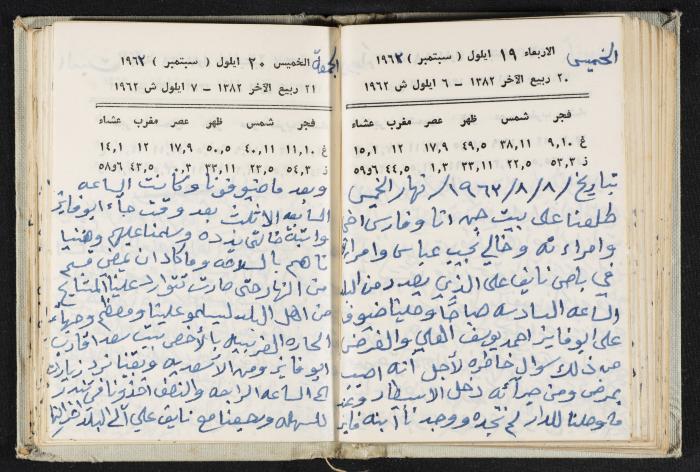 الخميس
الاربعاء ١٩ ايلول ( سبتمبر ) ١٩٦٢
٢٠ ربيع الآخر ١٣٨٢ – ٦ ايلول ش ١٩٦٢
فجر شمس ظهر عصر مغرب عشاء
غ ٩،١٠ ٣٨،١١ ٤٩،٥ ١٧،٩ ١٢ ١٥،١
ز ٥٣،٣ ٢٢،٥ ٣٣،١١ ١،٣ ٤٤،٥ ٥٩و٦
بتاريخ /٨/٨/ ١٩٦٣/ نهار الخميس
طلعنا على بيت جن انا وفارس اخي
وامراءته وخالي نجيب عباس وامراءته
في باص نايف علي الذي يصدر من البلد
الساعه السادسه صباحًا وحلينا ضيوف
على ابو فايز احمد يوسف العلي والغرض
من ذلك سوال خاطره لأجل أنه اصيب
بمرض ومن جرائه دخل الاسبطار وعند
ما وصلنا للدار لم نجده ووجدنا أبنه فايز
الجمعة
الخميس ٢٠ ايلول ( سبتمبر ) ١٩٦٢
٢١ ربيع الآخر ١٣٨٢ – ٧ ايلول ش ١٩٦٢
فجر شمس ظهر عصر مغرب عشاء
غ ١١،١٠ ٤٠،١١ ٥٠،٥ ١٧،٩ ١٢ ١٤،١
ز ٥٤،٣ ٢٣،٥ ٣٣،١١ ٠،٣ ٤٣،٥ ٥٨و٦
وبعد ما ضيوفونا وكانت الساعه
السابعه الا ثلث بعد وقت جاء ابو فايز
وابنة خالتي وسلمنا عليهم وهنينا
ناهم بالسلامه وما كاد ان يمضي قسم
من النهار حتى صارت تتوارد علينا المشايخ
من اهل البلد ليسلمو علينا ومعظم وجهاء
الحاره الغربيه بالأخص بيت سعد اقارب
ابو فايز ومن الأسعديه وبقينا نرد زياره
الى الساعه الرابعه والنصف اخذونا في تندر
للسهله ورجعنا مع نايف علي الى البلد